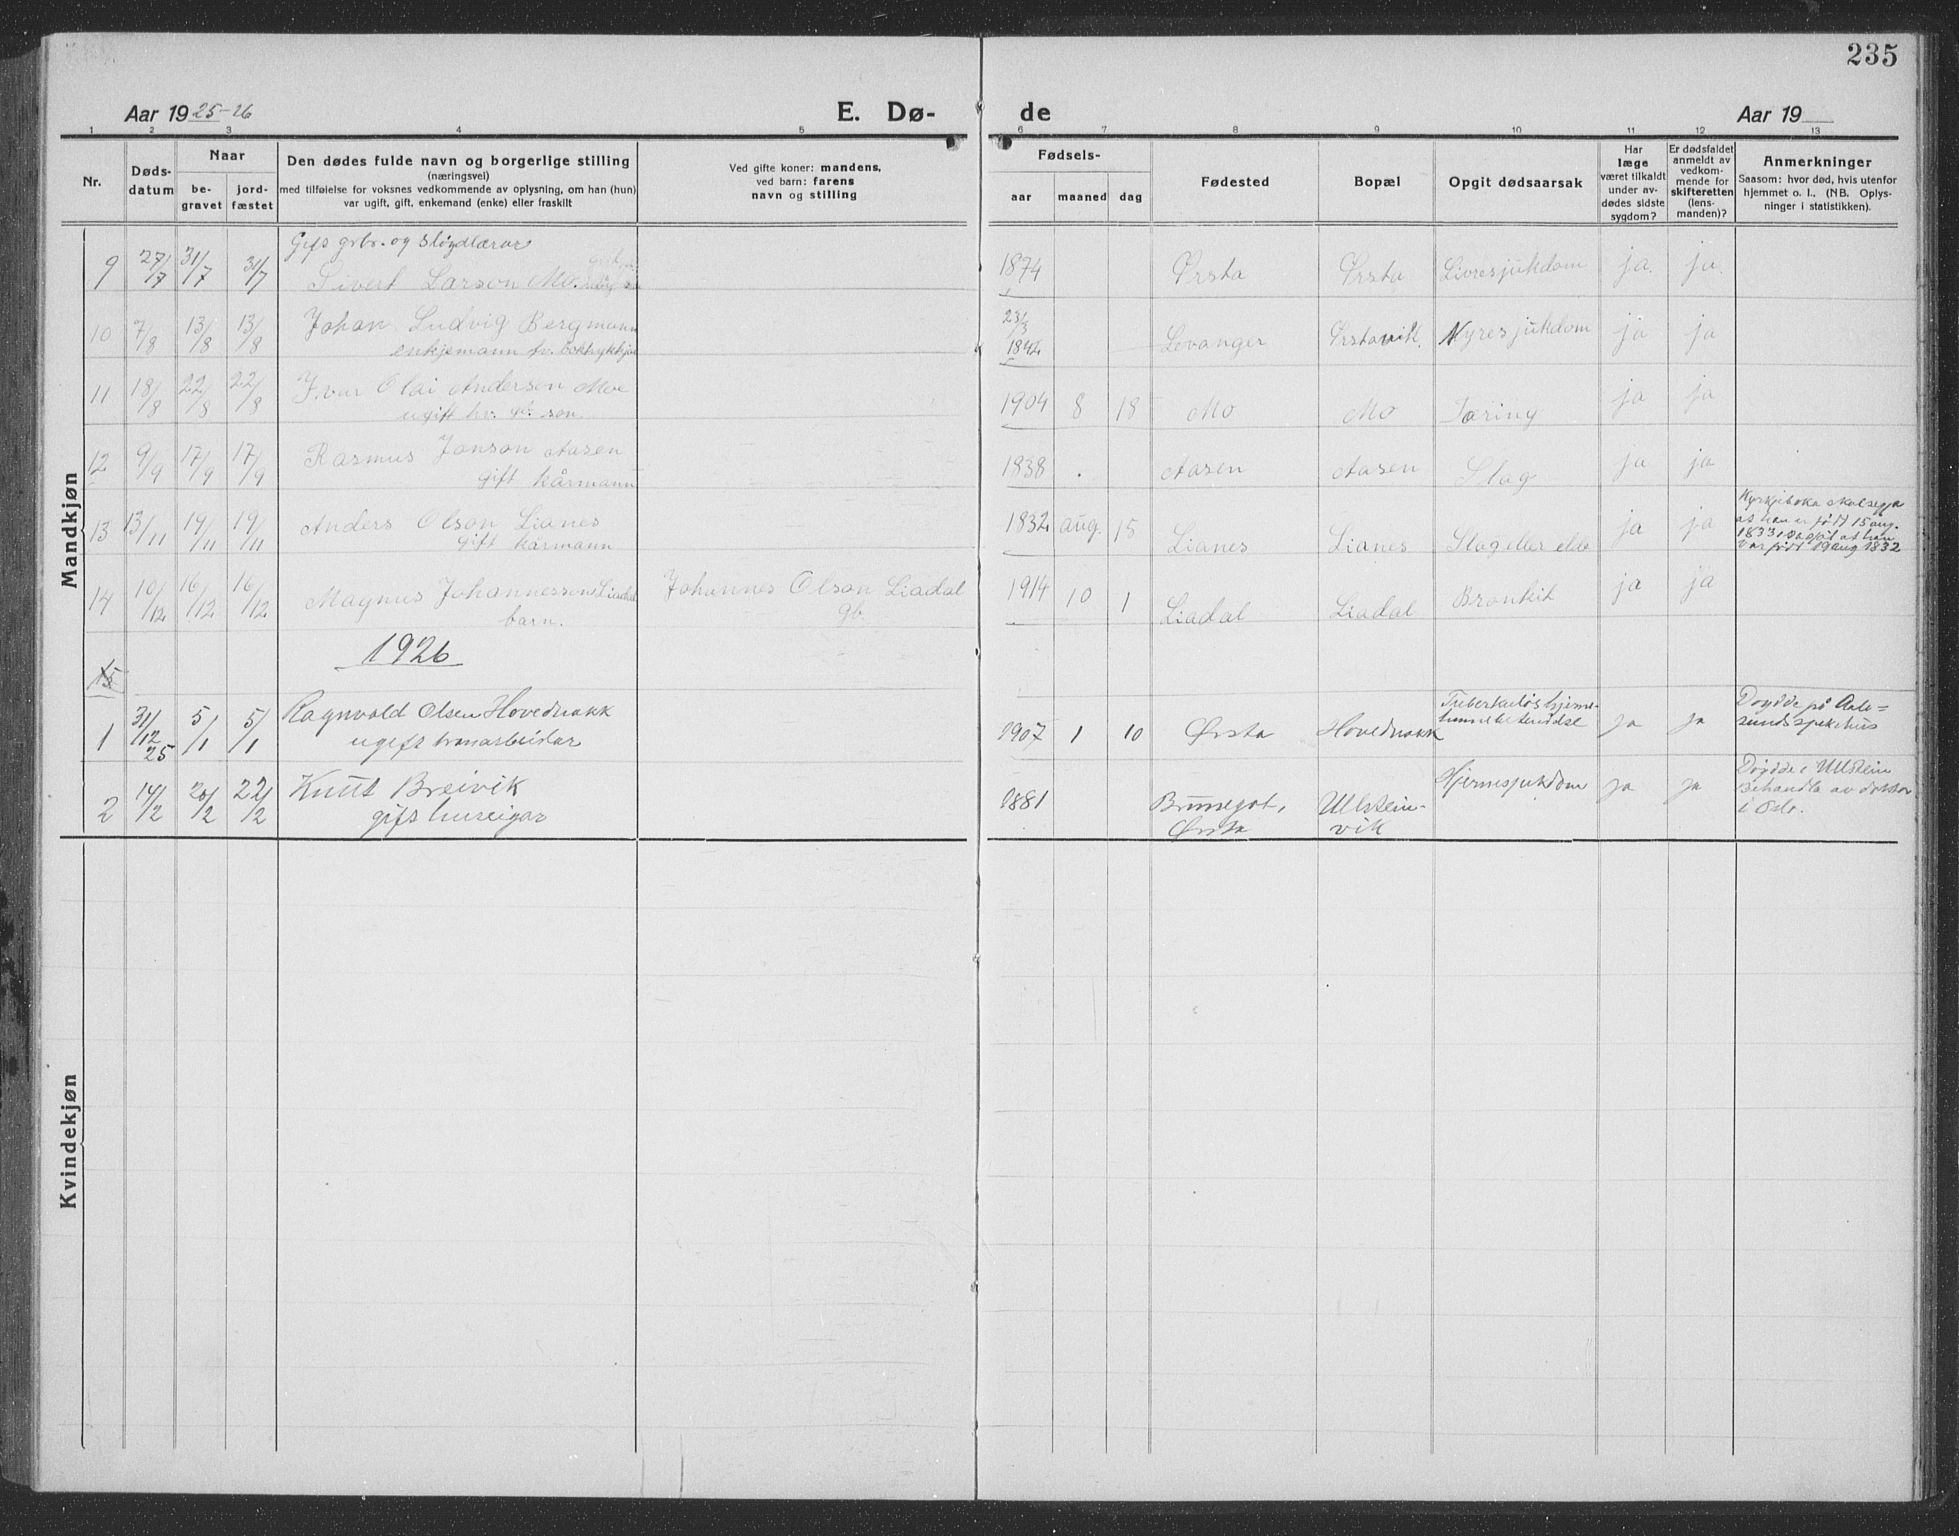 235
Aar 1925-26 E. Dø- de Aar 19
1 2 3 4 5 6 7 8 9 10 11 12 13
Nr.
Døds-
datum
Naar
be-
gravet
jord-
fæstet
Den dødes fulde navn og borgerlige stilling
(næringsvei)
med tilføielse for voksnes vedkommende av oplysning, om han (hun)
var ugift, gift, enkemand (enke) eller fraskilt
Ved gifte koner: mandens,
ved barn: farens
navn og stilling
Fødsels-
aar maaned dag
Fødested
Bopæl
Opgit dødsaarsak
Har
læge
været tilkaldt
under av-
dødes sidste
sygdom?
Er dødsfaldet
anmeldt av
vedkom-
mende for
skifteretten
(lens-
manden)?
Anmerkninger
Saasom: hvor død, hvis utenfor
hjemmet o. l., (NB. Oplys-
ninger i statistikken).
Mandkjøn
Gift grbr. og sløydlærar
9 27/7 31/7 31/7 Sivert Larson Mo. 1874 Ørsta Ørsta Livresjukdom ja. ja.
10 7/8 13/8 13/8 Johan Ludvig Bergmann 23/3 1842 Levanger Ørstavik. Nyresjukdom ja ja
enkjemann fv. boktrykkjar
11 18/8 22/8 22/8 Ivar Olai Anderson Moe 1904 8 18 Mo Mo Tæring ja ja
ugift hv. gb. son.
12 9/9 17/9 17/9 Rasmus Jonson Aasen 1838 Aasen Aasen Slag ja ja
gift kårmann
13 13/11 19/11 19/11 Anders Olson Lianes 1832 aug. 15 Lianes Lianes Slag eller elde ja ja
gift kårmann
Kyrkjeboka
at han er født 15 aug.
1833, sa sjøl at han
var født 19 aug 1832
14 10/12 16/12 16/12 Magnus Johannesson Liadal Johannes Olson Liadal 1914 10 1 Liadal Liadal Bronkit ja ja
barn. gb.
1926
15
1 31/12 25 5/1 5/1 Ragnvald Olsen Hovednakk 1907 1 10 Ørsta Hovednakk Tuberkuløs hjerne-
hinnebetendelse ja ja Døydde på Aale-
sunds sjukehus
ugift
2 14/2 20/2 22/2 Knut Breivik 1881 Brunegot, Ørsta Ulstein-
vik Hjernesjukdom ja ja Døydde i Ulstein
Behandla av doktor
i Oslo.
gift huseigar
Kvindekjøn